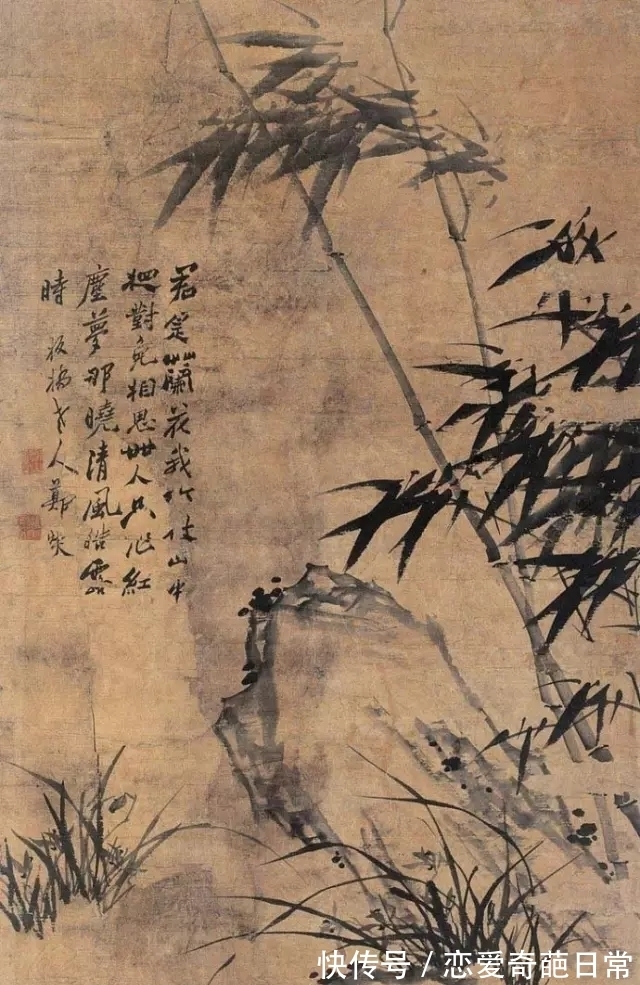 君是蘭花我竹枝山中
相對免相思世人只作紅
塵夢那曉清風皓露
時 板橋老人鄭燮
快传号 / 恋爱奇葩日常